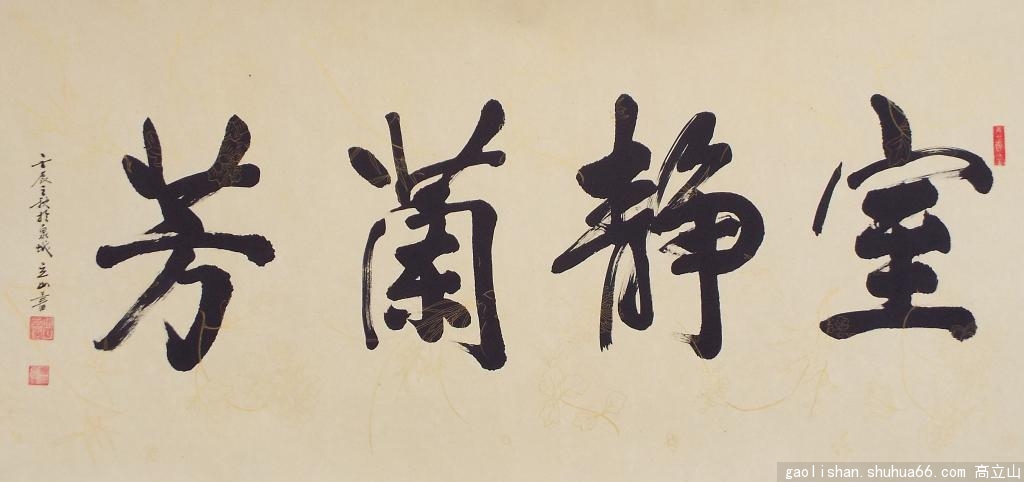 室静蘭芳
壬辰之秋於泉城立山書
gaolishan.shuhua66.com 高立山